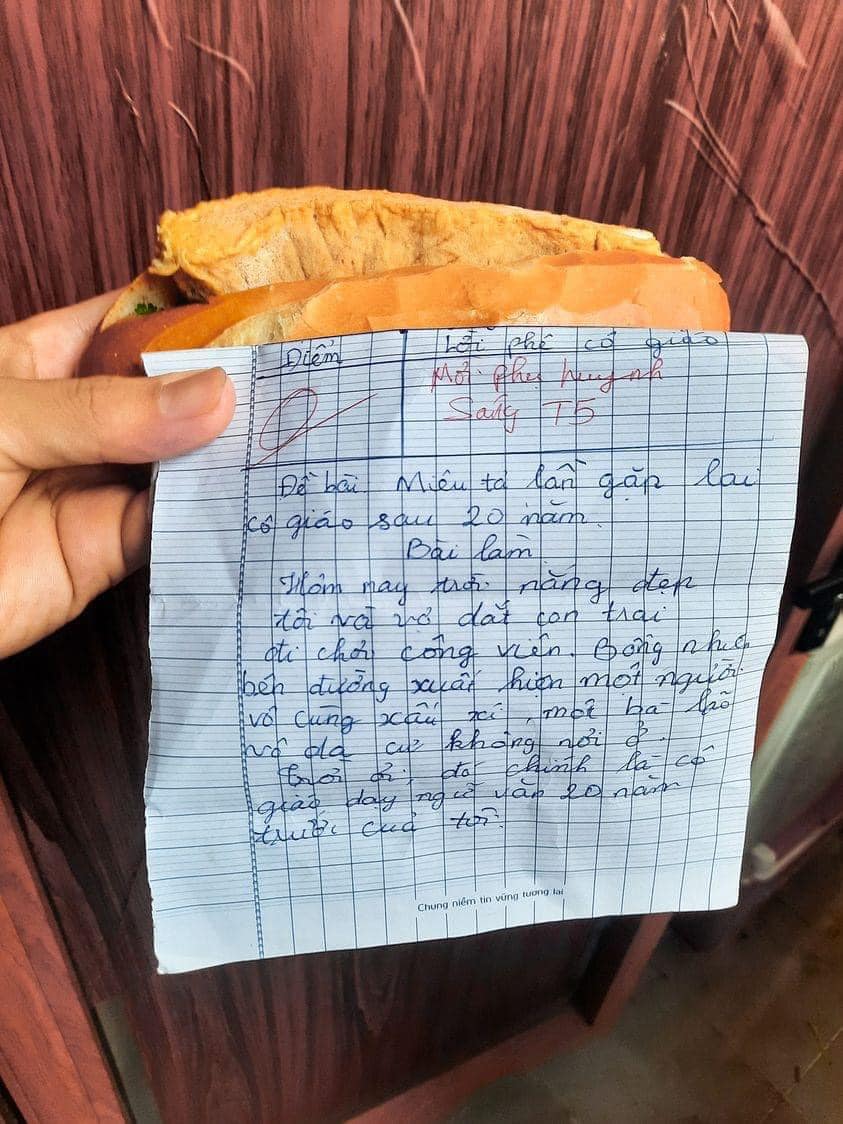 Điểm
Lời phê cô giáo
0
Mời phụ huynh
Sáng T5
Đề bài Miêu tả lần gặp lại
cô giáo sau 20 năm.
Bài làm
Hôm nay trời nắng đẹp
tôi và vợ dắt con trai
đi chơi công viên. Bỗng nhiên
bên đường xuất hiện một người
vô cùng xấu xí, một bà lão
vô da cư không nơi ở.
Trời ơi, đó chính là cô
giáo dạy ngữ văn 20 năm
trước của tôi.
Chung niềm tin vững tương lai